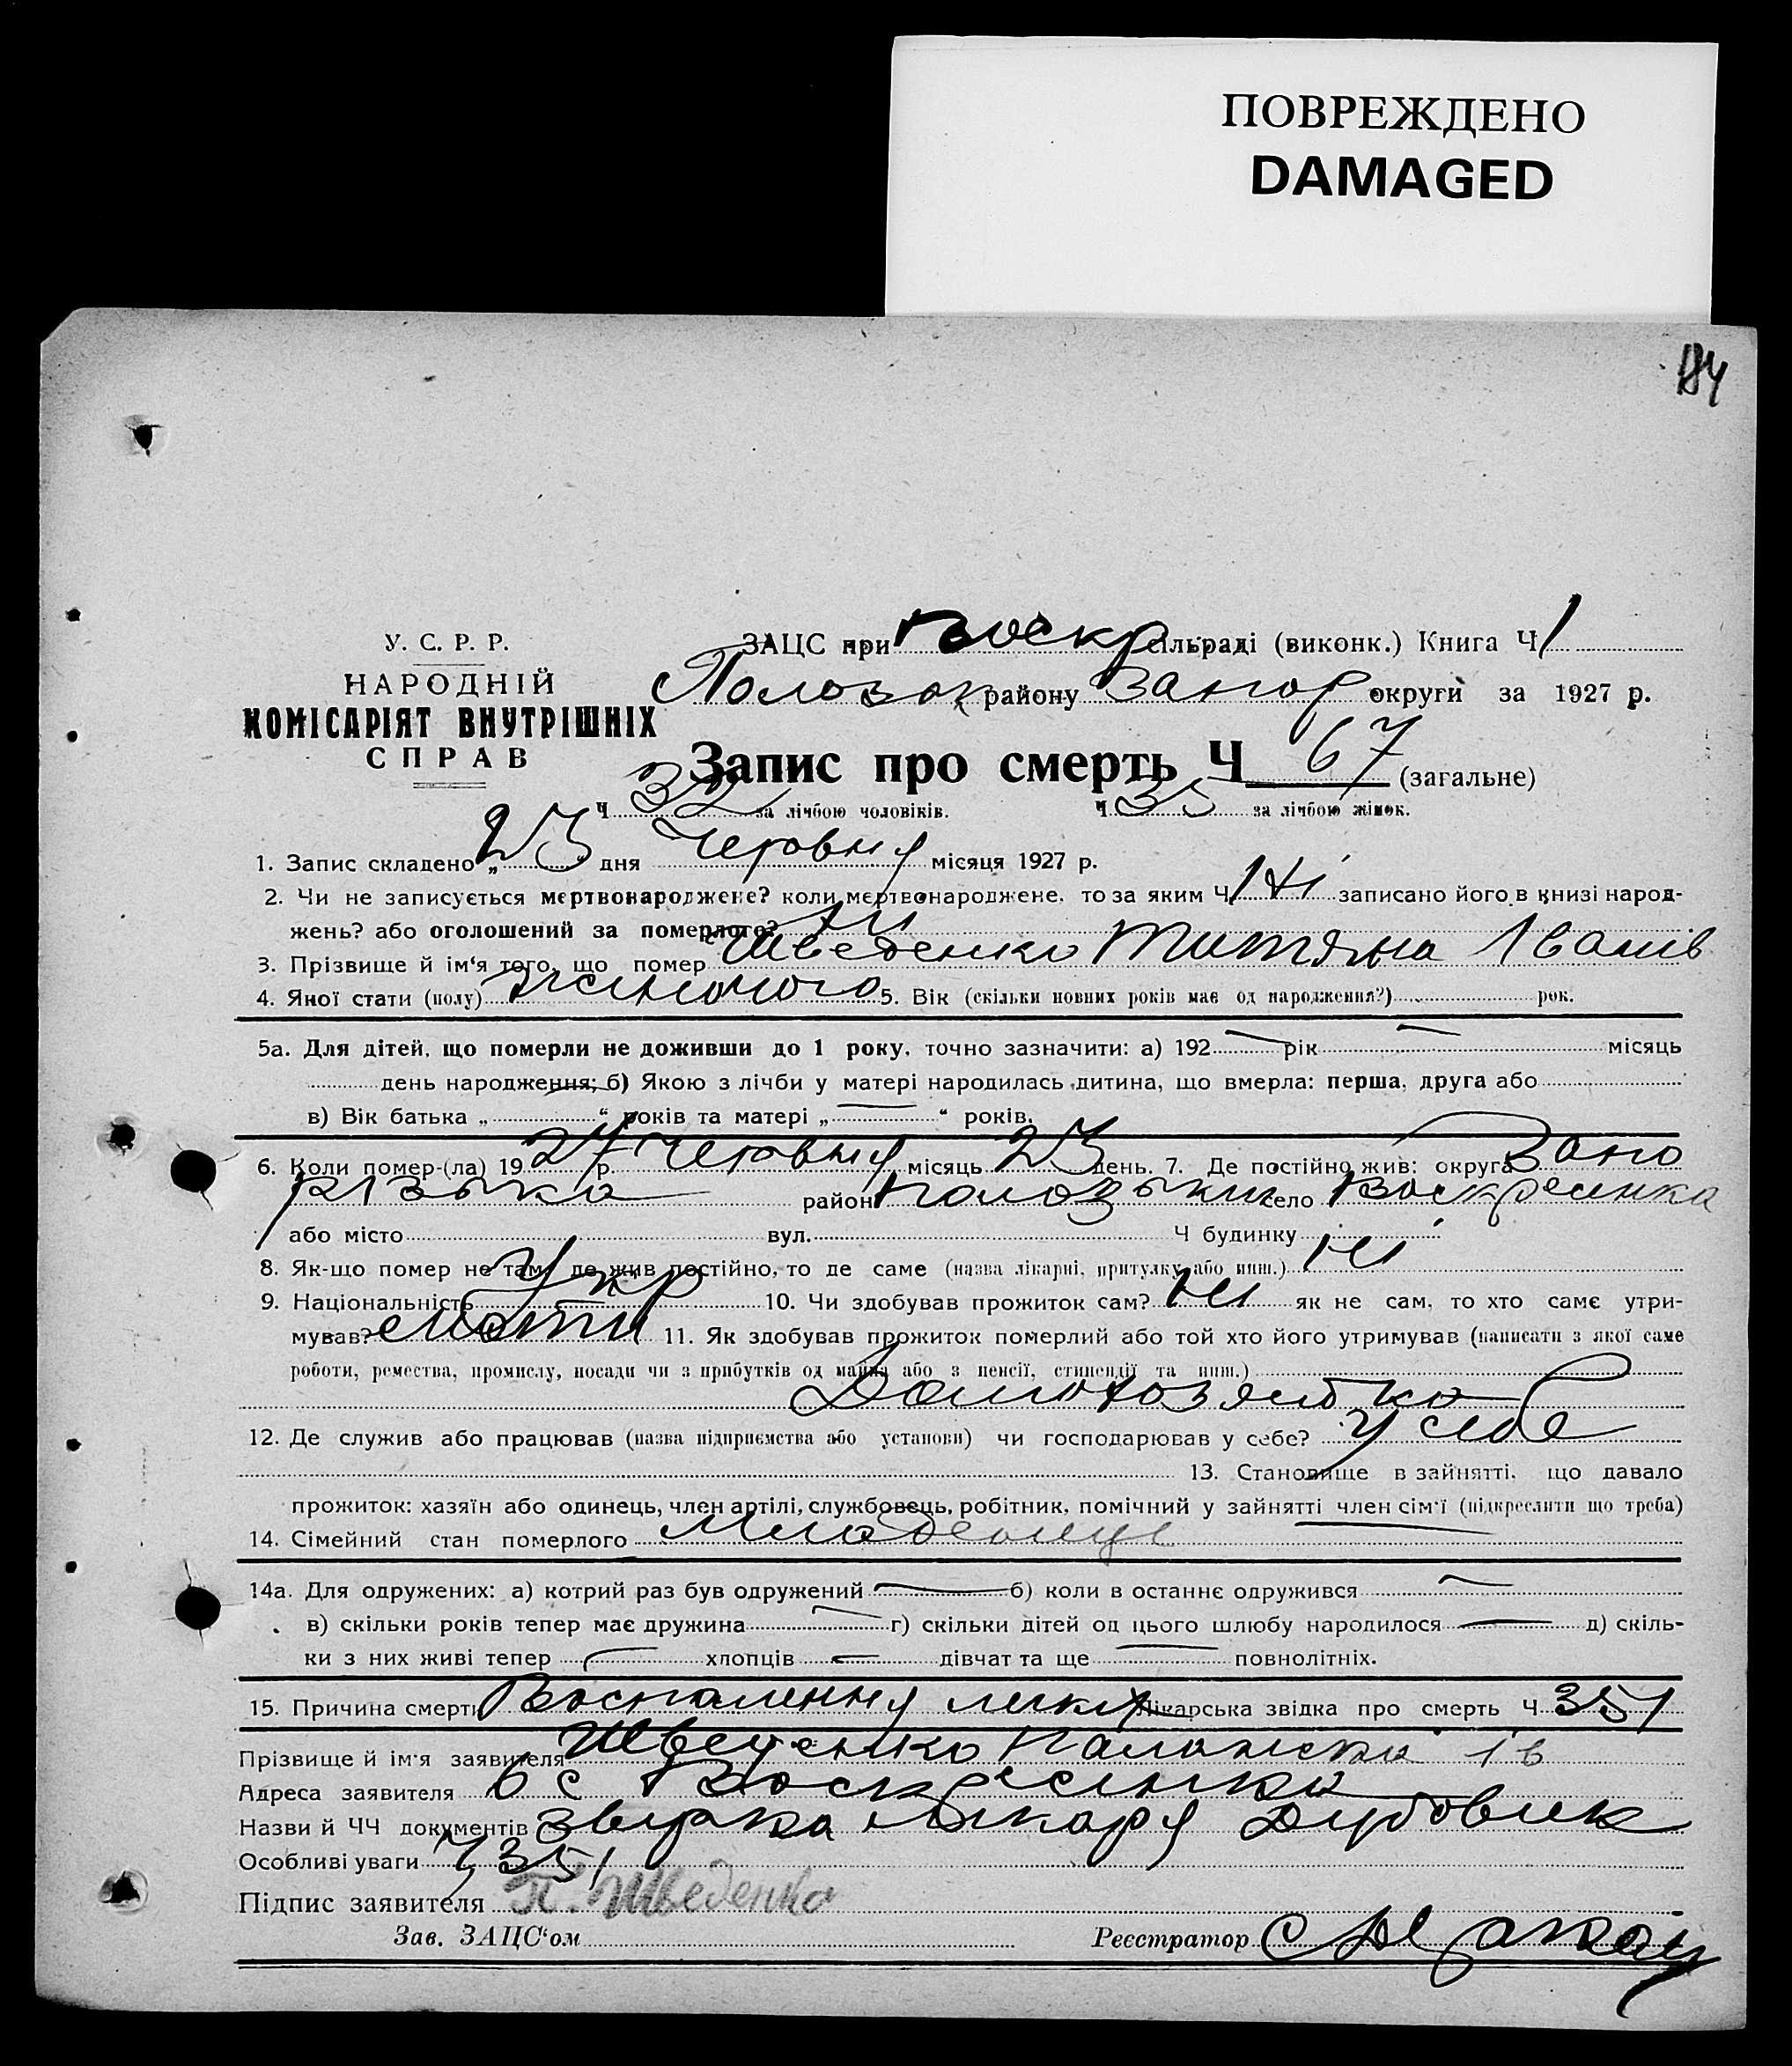 ПОВРЕЖДЕНО
DAMAGED
184
У. С. Р. Р.
НАРОДНІЙ
КОМІСАРІЯТ ВНУТРІШНІХ
СПРАВ
ЗАЦС при Воскр сільраді (виконк.) Книга Ч 1
Полозок району Запор округи за 1927 р.
Запис про смерть Ч 67 (загальне)
Ч 32 за лічбою чоловіків. Ч 35 за лічбою жінок.
1. Запис складено „ 23 дня Червня місяця 1927 р.
2. Чи не записується мертвонароджене? коли мертвонароджене, то за яким Ч Ні записано його в книзі народ-
жень? або оголошений за померлого? Ні
3. Прізвище й ім'я того, що помер Шведенко Титяна Іванів
4. Якої стати (полу) жиночого 5. Вік (скільки повних років має од народження?) рок.
5а. Для дітей, що померли не доживши до 1 року, точно зазначити: а) 192 — рік — місяць
день народження; б) Якою з лічби у матері народилась дитина, що вмерла: перша, друга або
в) Вік батька „ “ років та матері „ — “ років.
6. Коли помер-(ла) 19 27 р. Червня місяць 23 день. 7. Де постійно жив: округа Запо
різька район Полозьки село Воскресенка
або місто вул. Ч будинку
8. Як-що помер не там, де жив постійно, то де саме (назва лікарні, притулку або инш.) Ні
9. Національність Укр 10. Чи здобував прожиток сам? Ні як не сам, то хто саме утри-
мував? мати 11. Як здобував прожиток померлий або той хто його утримував (написати з якої саме
роботи, ремества, промислу, посади чи з прибутків од майна або з пенсії, стипендії та инш.)
Домохозяйка
12. Де служив або працював (назва підприємства або установи) чи господарював у себе? У себе
13. Становище в зайнятті, що давало
прожиток: хазяїн або одинець, член артілі, службовець, робітник, помічний у зайнятті член сім'ї (підкреслити що треба)
14. Сімейний стан померлого
14а. Для одружених: а) котрий раз був одружений — б) коли в останнє одружився —
в) скільки років тепер має дружина — г) скільки дітей од цього шлюбу народилося — д) скіль-
ки з них живі тепер — хлопців — дівчат та ще — повнолітніх.
15. Причина смерти Воспаления легких Лікарська звідка про смерть Ч 351
Прізвище й ім'я заявителя Шведенко Палажка Ів
Адреса заявителя с Воскресенка
Назви й ЧЧ документів лікаря Дубовик
Особливі уваги Ч 351
Підпис заявителя П. Шведенко
Зав. ЗАЦС'ом Реєстратор